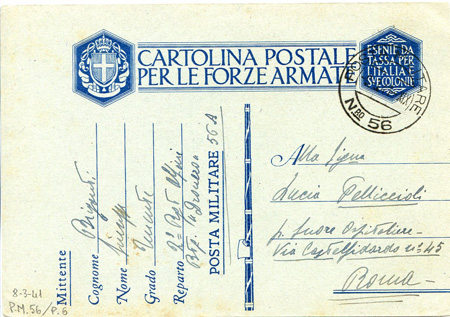 CARTOLINA POSTALE
PER LE FORZE ARMATE
ESENTE DA
TASSA PER
L'ITALIA E
SVE COLONIE
POSTA MILITARE
N.RO 56
Mittente
Cognome
Nome Giuseppe
Grado Tenente
Reparto 2° Regt Alpini
Btg.
POSTA MILITARE 56 A
Alla Sigra
Lucia Pelliccioli
p. Suore Ospitaliere
Via Castelfidardo n° 45
Roma
8-3-41
P.M.56/P.6